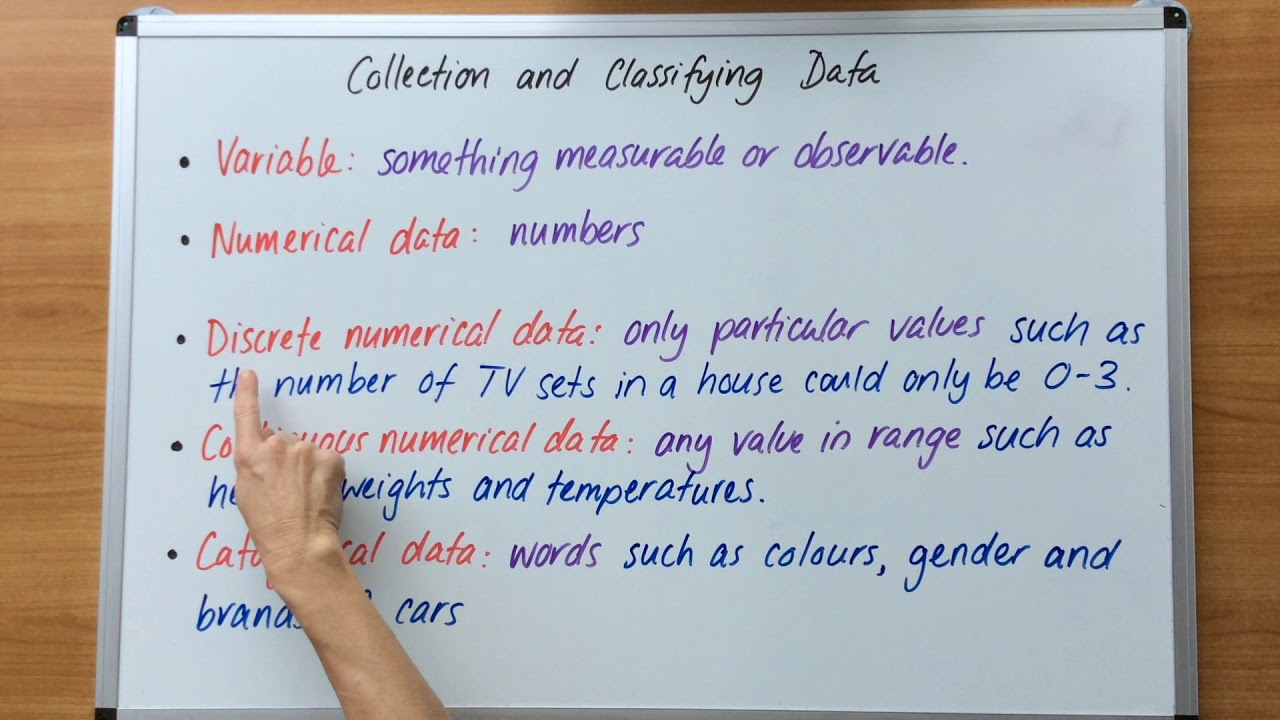 Collection and Classifying Data
• Variable: something measurable or observable.
• Numerical data: numbers
• Discrete numerical data: only particular values such as
the number of TV sets in a house could only be 0-3.
• Continuous numerical data: any value in range such as
weights and temperatures.
• Categorical data: words such as colours, gender and
brands cars